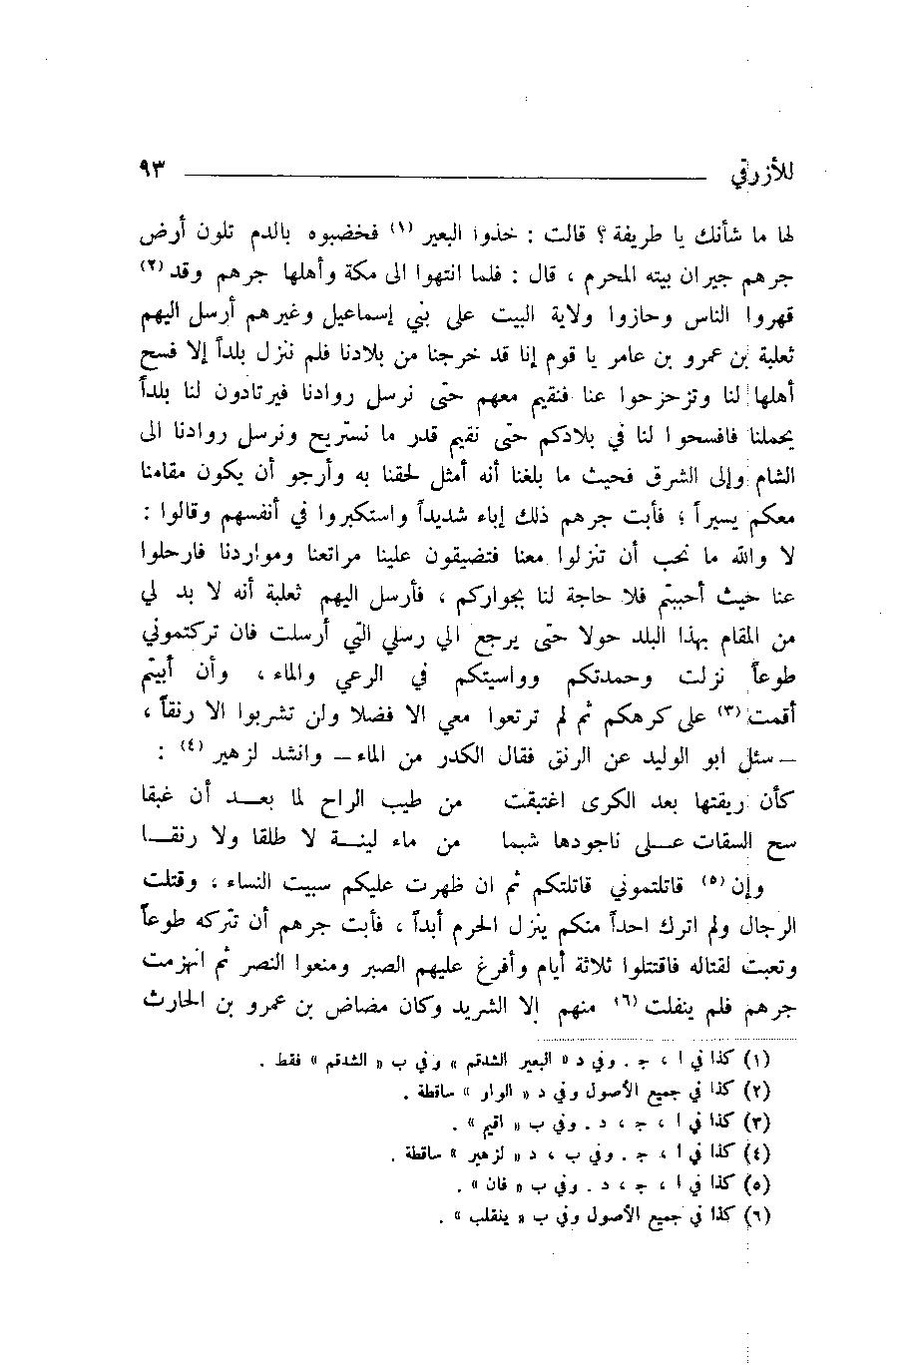 للأزرقي ٩٣
لها ما شأنك يا طريفة ؟ قالت : خذوا البعير (١) فخضبوه بالدم تلون أرض
جرهم جيران بيته المحرم ، قال : فلما انتهوا الى مكة وأهلها جرهم وقد (٢)
قهروا الناس وحازوا ولاية البيت على بني إسماعيل وغيرهم أرسل اليهم
ثعلبة بن عمرو بن عامر يا قوم إنا قد خرجنا من بلادنا فلم ننزل بلداً إلا فسح
أهلها لنا وتزحزحوا عنا فنقيم معهم حتى نرسل روادنا فيرتادون لنا بلداً
يحملنا فافسحوا لنا في بلادكم حتى نقيم قدر ما نستريح ونرسل روادنا الى
الشام وإلى الشرق فحيث ما بلغنا أنه أمثل لحقنا به وأرجو أن يكون مقامنا
معكم يسيراً ؛ فأبت جرهم ذلك إباء شديداً واستكبروا في أنفسهم وقالوا :
لا والله ما نحب أن تنزلوا معنا فتضيقون علينا مراتعنا ومواردنا فارحلوا
عنا حيث أحببتم فلا حاجة لنا بجواركم ، فأرسل اليهم ثعلبة أنه لا بد لي
من المقام بهذا البلد حولا حتى يرجع الي رسلي التي أرسلت فان تركتموني
طوعاً نزلت وحمدتكم وواسيتكم في الرعي والماء ، وأن أبيتم
أقمت (٣) على كرهكم ثم لم ترتعوا معي الا فضلا ولن تشربوا الا رنقاً ،
– سئل ابو الوليد عن الرنق فقال الكدر من الماء – وانشد لزهير (٤) :
كأن ريقتها بعد الكرى اغتبقت من طيب الراح لما بعــد أن غبقا
سح السقات عــلى ناجودها شبما من ماء لينــة لا طلقا ولا رنقــا
وإن (٥) قاتلتموني قاتلتكم ثم ان ظهرت عليكم سبيت النساء ، وقتلت
الرجال ولم اترك احداً منكم ينزل الحرم أبداً ، فأبت جرهم أن تتركه طوعاً
وتعبت لقتاله فاقتتلوا ثلاثة أيام وأفرغ عليهم الصبر ومنعوا النصر ثم انهزمت
جرهم فلم ينفلت (٦) منهم إلا الشريد وكان مضاض بن عمرو بن الحارث
(١) كذا في ا ، ج . وفي د « البعير الشدقم » وفي ب « الشدقم » فقط .
(٢) كذا في جميع الأصول وفي د « الوار » ساقطة .
(٣) كذا في ا ، ج ، د . وفي ب « اقيم » .
(٤) كذا في ا ، ج . وفي ب ، د « لزهير » ساقطة .
(٥) كذا في ا ، ج ، د . وفي ب « فان » .
(٦) كذا في جميع الأصول وفي ب « ينقلب » .